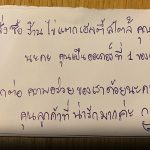 สั่งซื้อ ร้าน ไข่แดกเฮลตี้สไตล์ คุณ
นะคะ คุณเป็นออเดอร์ที่ 1 ของ
กต่อ ความอร่อยของเราด้วยนะคะ
คุณลูกค้าที่ น่ารักมากค่ะ